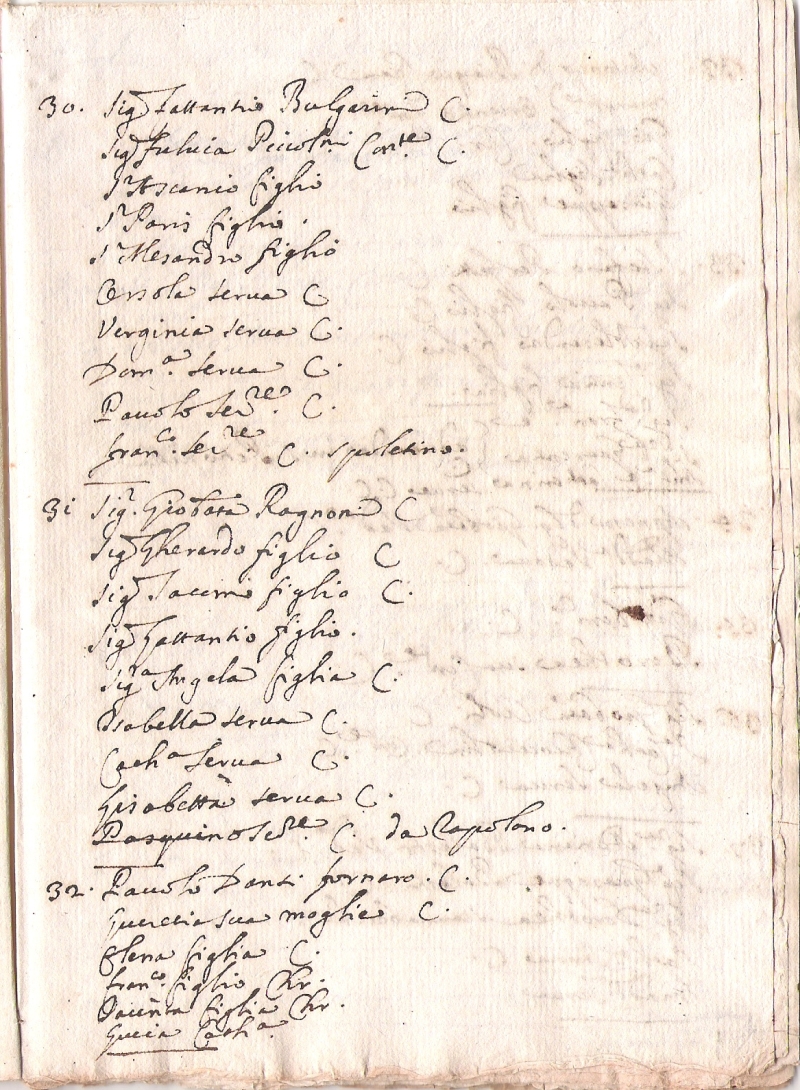 30. Sig.r Lattantio Bulgarini C.
Sig.ra Fulvia Piccolni Con.te C.
S.r Ascanio figlio
S.r Paris figlio.
S.r Alesandro figlio
Orsola serva C
Verginia serva C.
Dom.a serva C.
Pauolo Ser.re C.
fran.co Ser.re C. spoletino.
31 Sig.r Giobata Ragnoni C
Sig.r Gherardo figlio C
Sig.r figlio C.
Sig.r Lattantio figlio.
Sig.a Angela figlia C.
Isabella serva C.
Cath.a serva C.
Gisabetta serva C.
Pasquino Ser.re C. da Rapolano.
32. Pauolo Danti fornaro. C.
sua moglie C.
Elena figlia C.
fran.co figlio Chr.
figlia Chr.
Cath.a